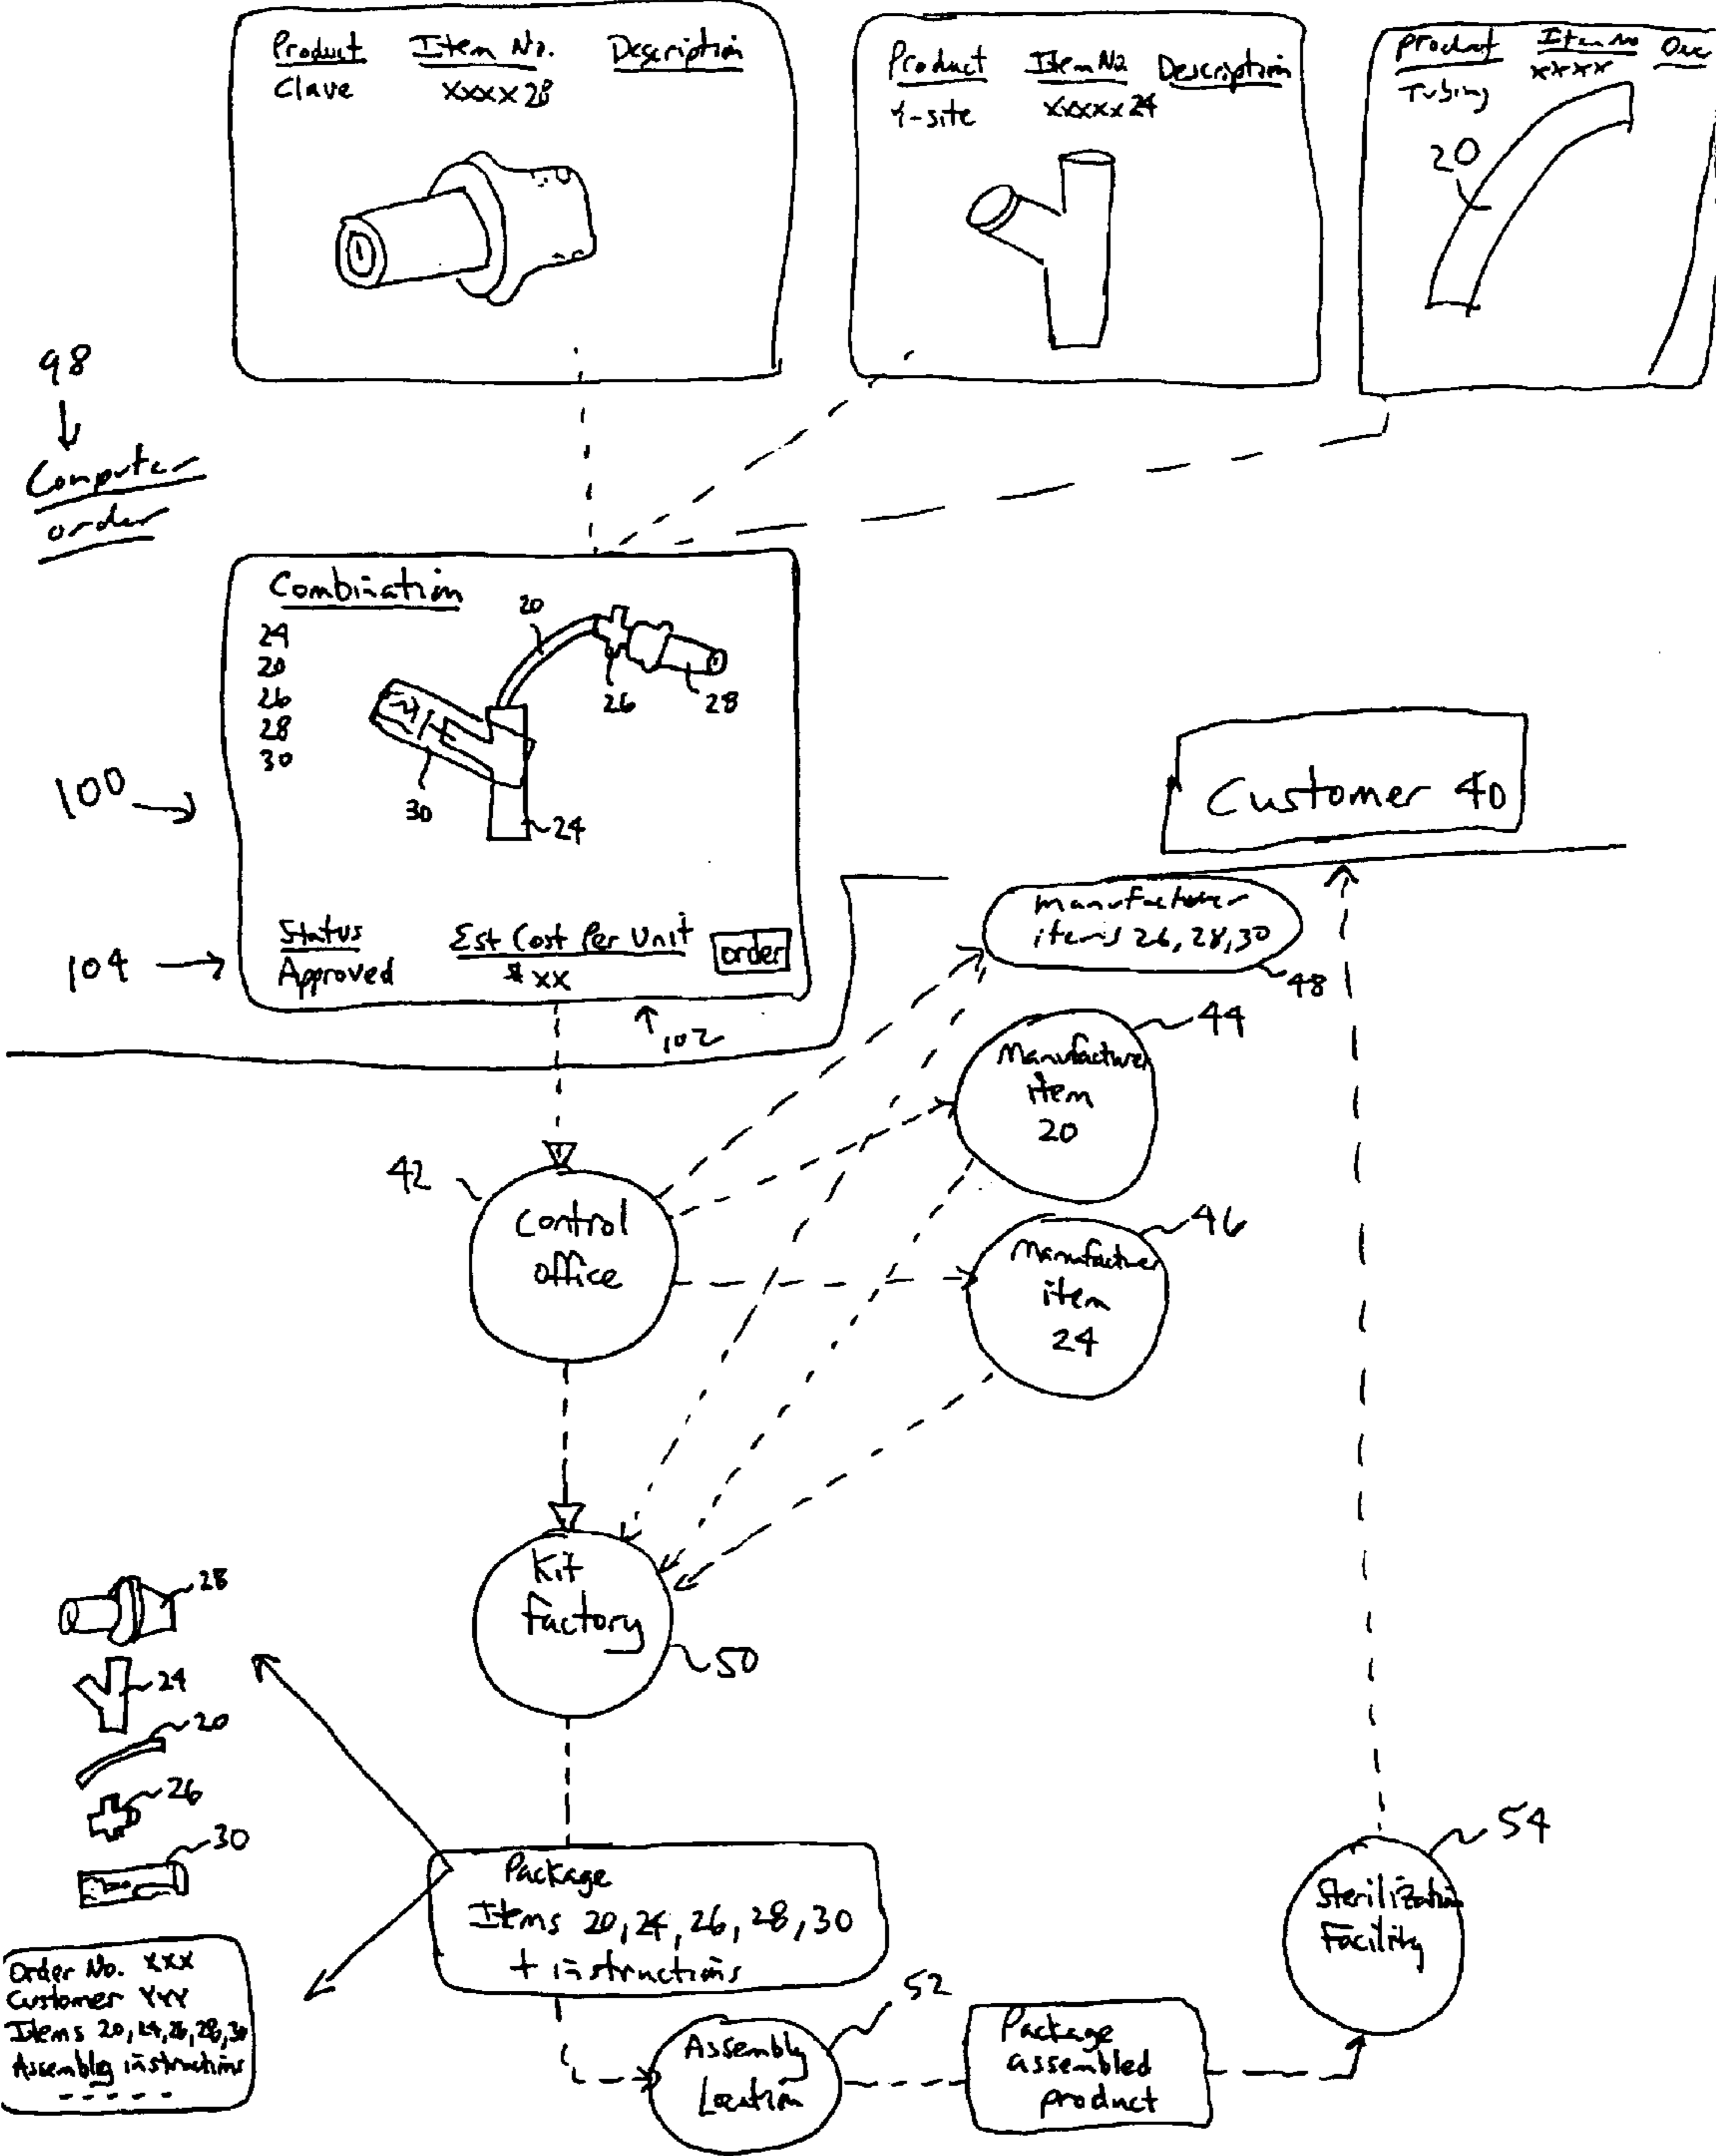 Product Item No. Description
Clave xxxx28
Product Item No. Description
Y-site xxxxx24
Product Item No
Tubing xxxx
20
98
Computer
order
Combination
24
20
26
28
30
20
26
28
30
24
100
104
Status Est Cost Per Unit order
Approved $xx
102
Customer 40
manufacturer
items 26, 28, 30
48
44
Manufacturer
item
20
46
Manufacturer
item
24
42
Control
office
Kit
Factory
50
28
24
20
26
30
Package
Items 20, 24, 26, 28, 30
+ instructions
Order No. XXX
Customer YYY
Items 20, 24, 26, 28, 30
Assembly instructions
52
Assembly
Location
Package
assembled
product
54
Sterilization
Facility